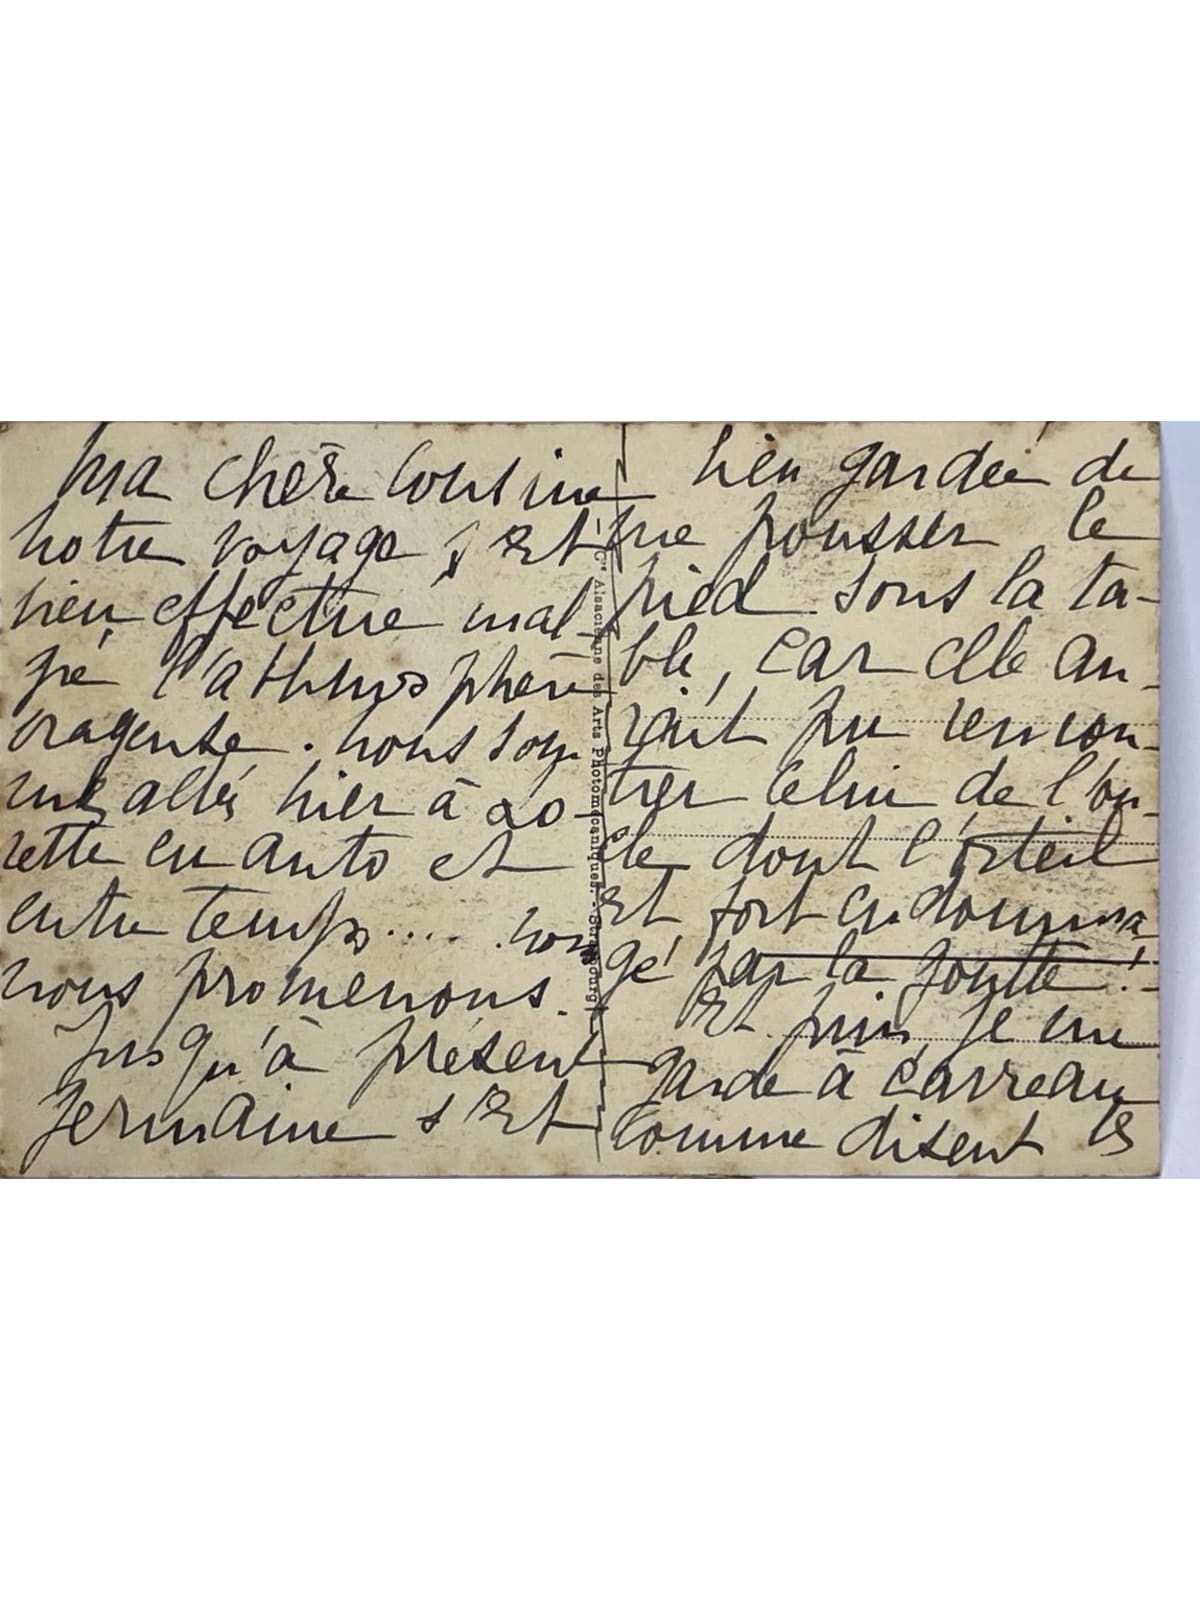 Ma chère Cousine
notre voyage s'est
bien effectué mal-
gré l'athmosphère
orageuse. nous som
mes allés hier à Lo-
rette en auto et
entre temps..... nous
nous promenons.
Jusqu'à présent
Germaine s'est
bien gardée de
me pousser le
pied sous la ta-
ble, car elle au-
rait pu rencon-
trer celui de l'on-
cle dont l'orteil
est fort endomma
gé par la goutte!
Et puis, je me
garde à carreau
comme disent les
Cie Alsacienne des Arts Photomécaniques - Strasbourg